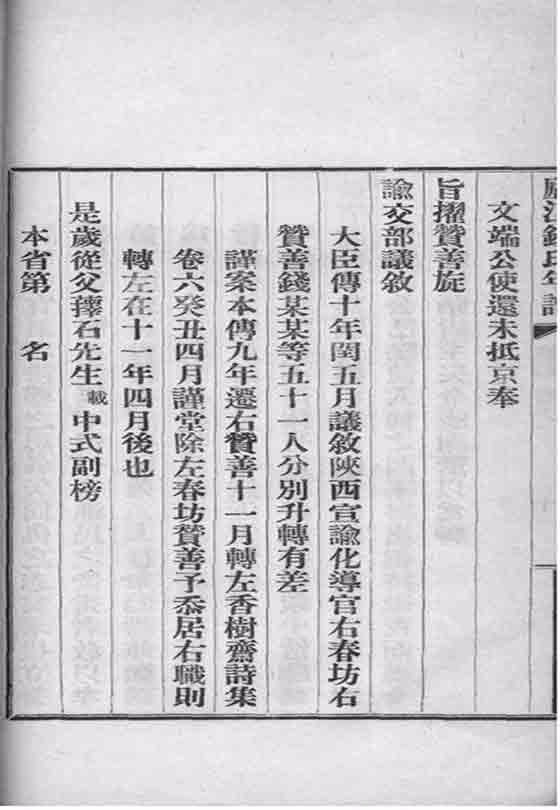 氏年譜
文端公使還未抵京奉
旨擢贊善旋
諭交部議敘
大臣傳十年閏五月議敘陝西宣諭化導官右春坊右
贊善錢某某等五十一人分別升轉有差
謹案本傳九年遷右贊善十一月轉左香樹齋詩集
卷六癸丑四月謹堂除左春坊贊善予忝居右職則
轉左在十一年四月後也
是歲從父蘀石先生載中式副榜
本省第 名